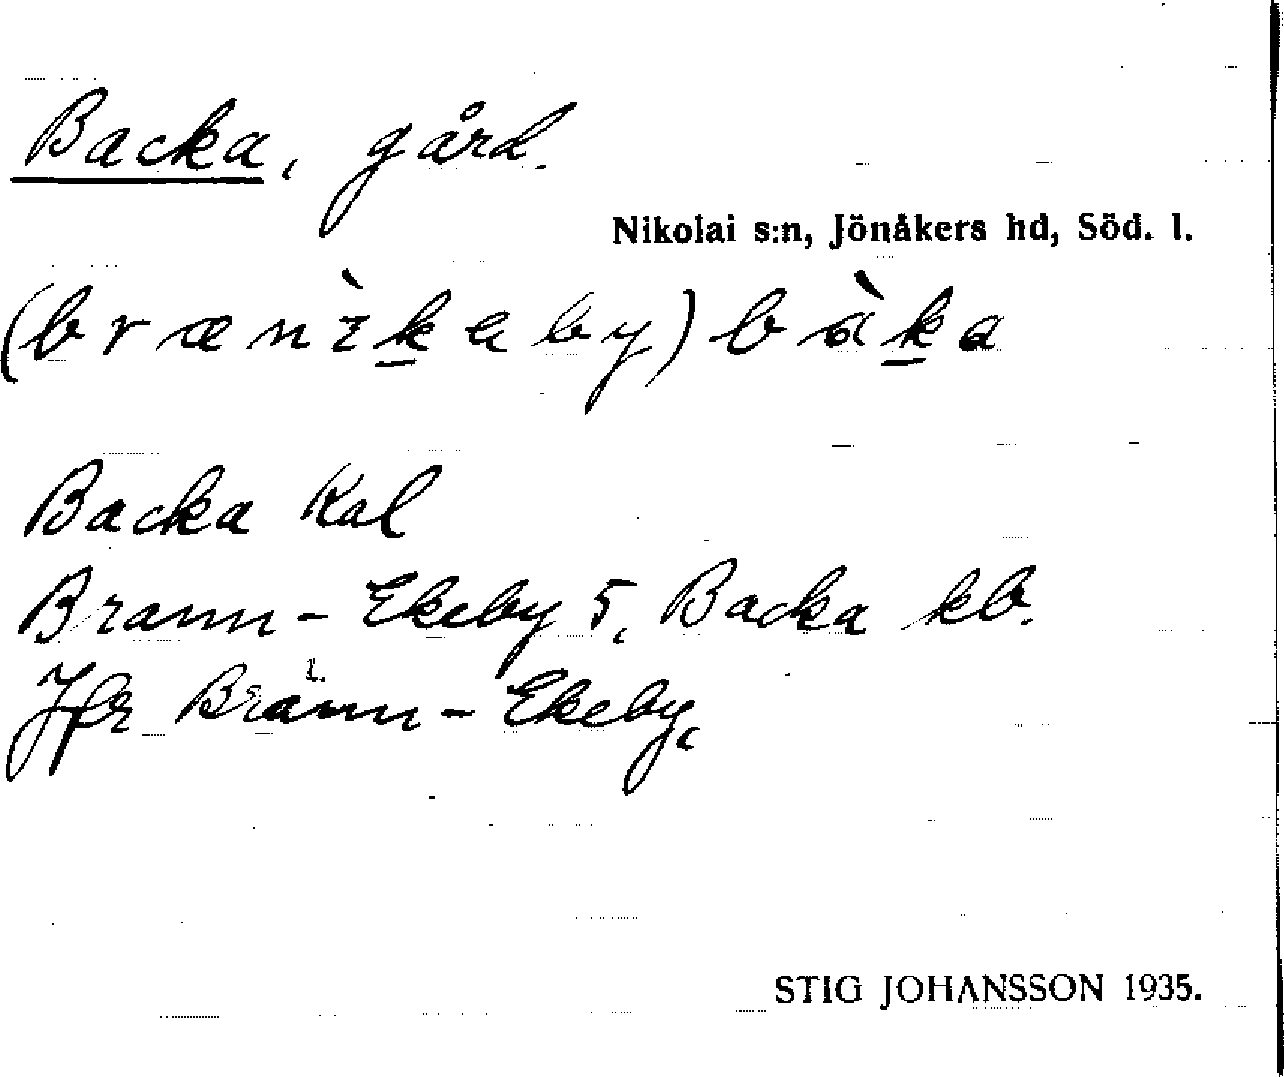 Backa, gård.
Nikolai s:n, Jönåkers hd, Söd. l.
(brænìkeby) bàka
Backa Kal
Brann-Ekeby 5, Backa kb.
Jfr Bränn-Ekeby,
STIG JOHANSSON 1935.